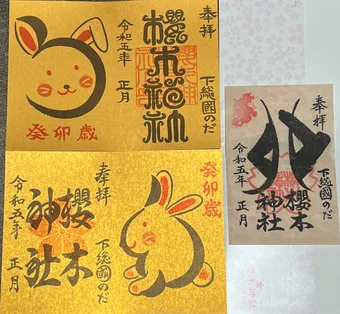 奉拝
下総國のだ
櫻木神社
令和五年 正月
癸卯歳
癸卯歳
奉拝
下総國のだ
櫻木
神社
令和五年 正月
奉拝
下総國のだ
卯
櫻木
神社
令和五年 正月